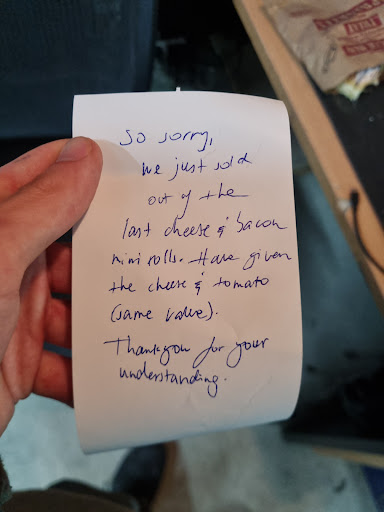 So sorry,
we just sold
out of the
last cheese & bacon
mini rolls. Have given
the cheese & tomato
(same value).
Thankyou for your
understanding.